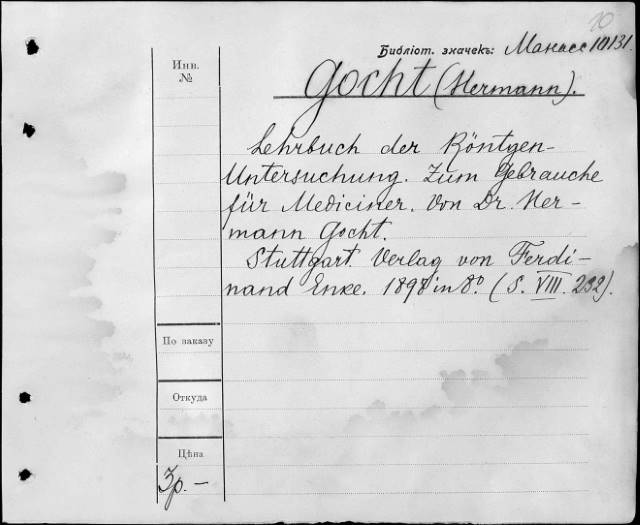 10
Библіот. значекъ: Манасс 10131.
Инв.
№
Gocht (Hermann).
Lehrbuch der Röntgen-
Untersuchung. Zum Gebrauche
für Mediciner. Von Dr. Her-
mann Gocht.
Stuttgart. Verlag von Ferdi-
nand Enke. 1898 in 8º. (S. VIII. 232).
По заказу
Откуда
Цѣна
3р. -